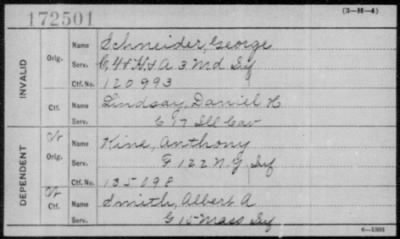 172501
(3-H-4)
INVALID
Orig.
Name Schneider, George
Serv. C, 4 & H, & A 3 Md Inf
Ctf. No. 120993
Ctf.
Name Lindsay, Daniel H
Serv. C 17 Ill Cav
DEPENDENT
Orig.
Name Kine, Anthony
Serv. F 122 N.Y. Inf
Ctf. No. 135098
Ctf.
Name Smith, Albert A
Serv. G 15 Mass Inf